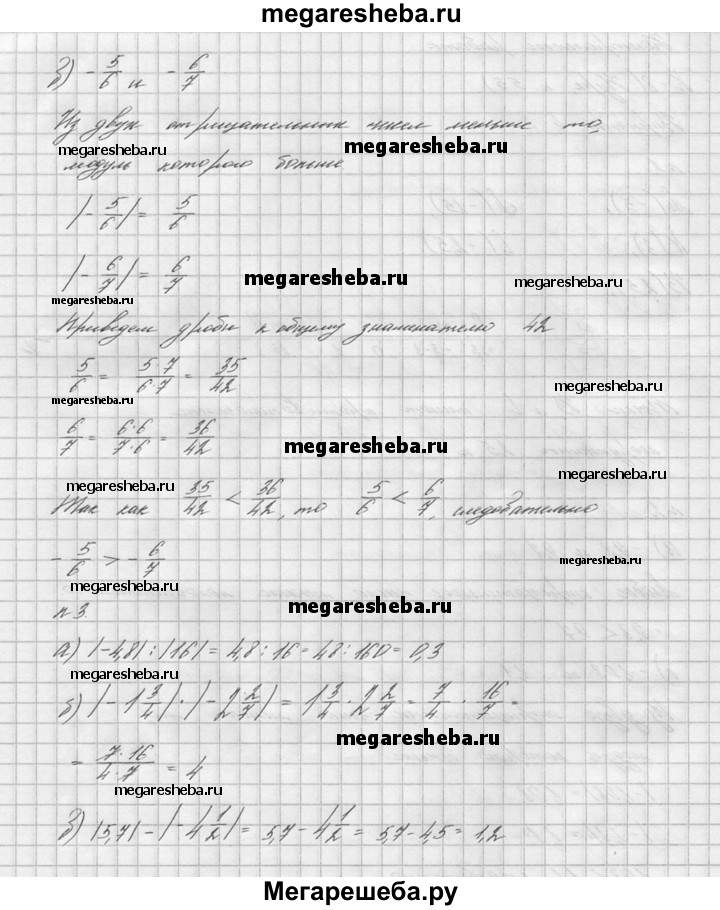 megaresheba.ru
в) -5/6 и -6/7
Из двух отрицательных чисел меньше то,
megaresheba.ru megaresheba.ru
модуль которого больше
|-5/6| = 5/6
|-6/7| = 6/7
megaresheba.ru megaresheba.ru
megaresheba.ru
Приведем дроби к общему знаменателю 42
5/6 = 5·7/6·7 = 35/42
megaresheba.ru
megaresheba.ru
6/7 = 6·6/7·6 = 36/42
megaresheba.ru
megaresheba.ru
megaresheba.ru
Так как 35/42 < 36/42, то 5/6 < 6/7, следовательно
-5/6 > -6/7
megaresheba.ru
megaresheba.ru
megaresheba.ru
№3.
а) |-4,8| : |16| = 4,8 : 16 = 48 : 160 = 0,3
megaresheba.ru
б) |-1 3/4| · |-2 2/7| = 1 3/4 · 2 2/7 = 7/4 · 16/7 =
megaresheba.ru
= 7·16/4·7 = 4
megaresheba.ru
в) |5,7| - |-4 1/2| = 5,7 - 4 1/2 = 5,7 - 4,5 = 1,2
Мегарешеба.ру